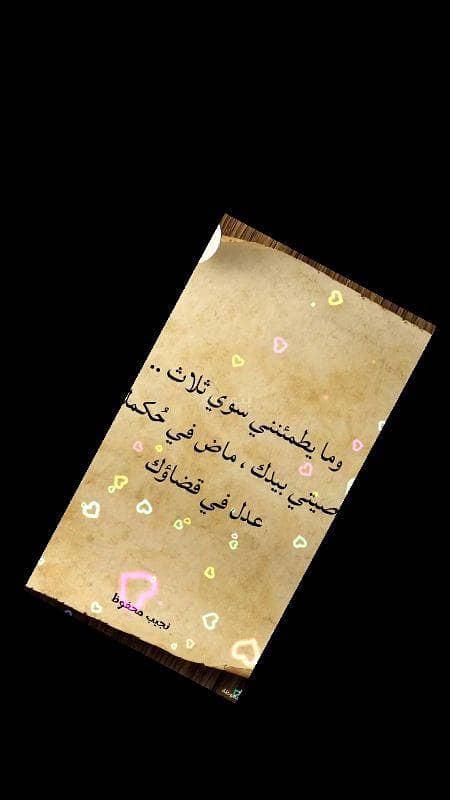 وما يطمئنني سوي ثلاث ..
صيتي بيدك ، ماض في حُكما
عدل في قضاؤك
نجيب محفوظ